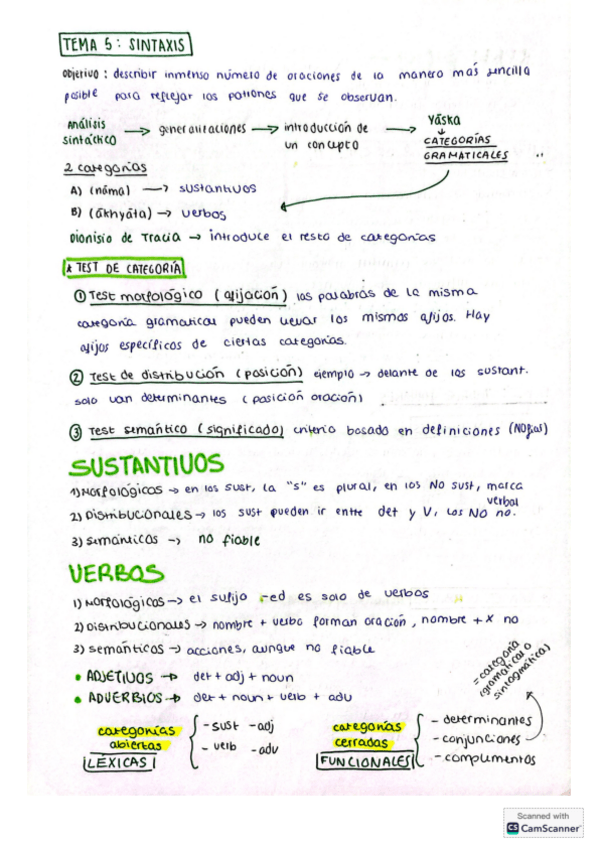 TEMA 5: SINTAXIS
objetivo: describir inmenso número de oraciones de la manera más sencilla
posible para reflejar los patrones que se observan.
Análisis sintáctico → generalizaciones → introducción de un concepto → Yāska ↓ CATEGORÍAS GRAMATICALES
2 categorías
A) (nāma) → sustantivos
B) (ākhyāta) → verbos
Dionisio de Tracia → introduce el resto de categorías
* TEST DE CATEGORÍA
① Test morfológico (afijación) las palabras de la misma
categoría gramatical pueden llevar los mismos afijos. Hay
afijos específicos de ciertas categorías.
② Test de distribución (posición) ejemplo → delante de los sustant.
solo van determinantes (posición oración)
③ Test semántico (significado) criterio basado en definiciones (NO fias)
SUSTANTIVOS
1) Morfológicos → en los sust, la "s" es plural, en los NO sust, marca verbal
2) Distribucionales → los sust pueden ir entre det y V, los NO no.
3) semánticos → no fiable
VERBOS
1) Morfológicos → el sufijo -ed es solo de verbos
2) Distribucionales → nombre + verbo forman oración, nombre + X no
3) semánticos → acciones, aunque no fiable
• ADJETIVOS → det + adj + noun
• ADVERBIOS → det + noun + verb + adv
= categoría
(gramatical o
sintagmática)
categorías
abiertas
LÉXICAS
- sust - adj
- verb - adv
categorías
cerradas
FUNCIONALES
- determinantes
- conjunciones
- complementos
Scanned with
CS CamScanner